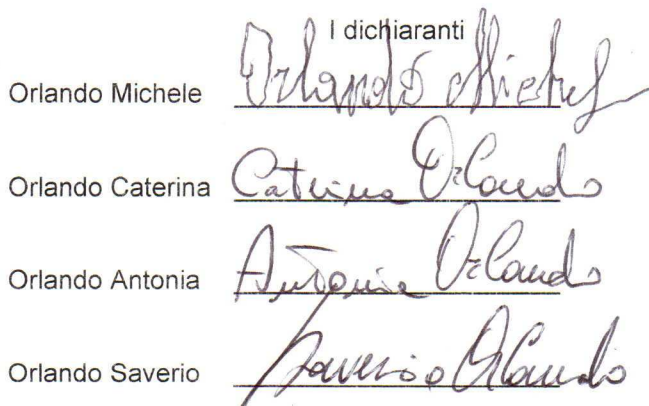 I dichiaranti
Orlando Michele Orlando Michele
Orlando Caterina Caterina Orlando
Orlando Antonia Antonia Orlando
Orlando Saverio Saverio Orlando